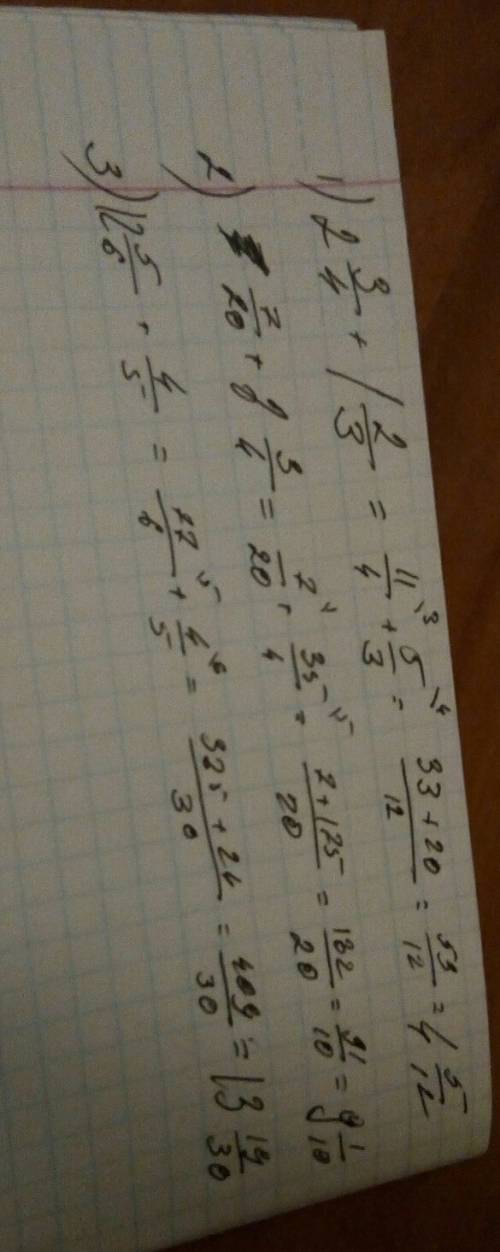 1) 2 3/4 + 1 2/3 = 11/4 \3 + 5/3 \4 = 33+20/12 = 53/12 = 4 5/12
2) 7/20 + 8 3/4 = 7/20 \1 + 35/4 \5 = 7+175/20 = 182/20 = 91/10 = 9 1/10
3) 12 5/6 + 4/5 = 77/6 \5 + 4/5 \6 = 385+24/30 = 409/30 = 13 19/30